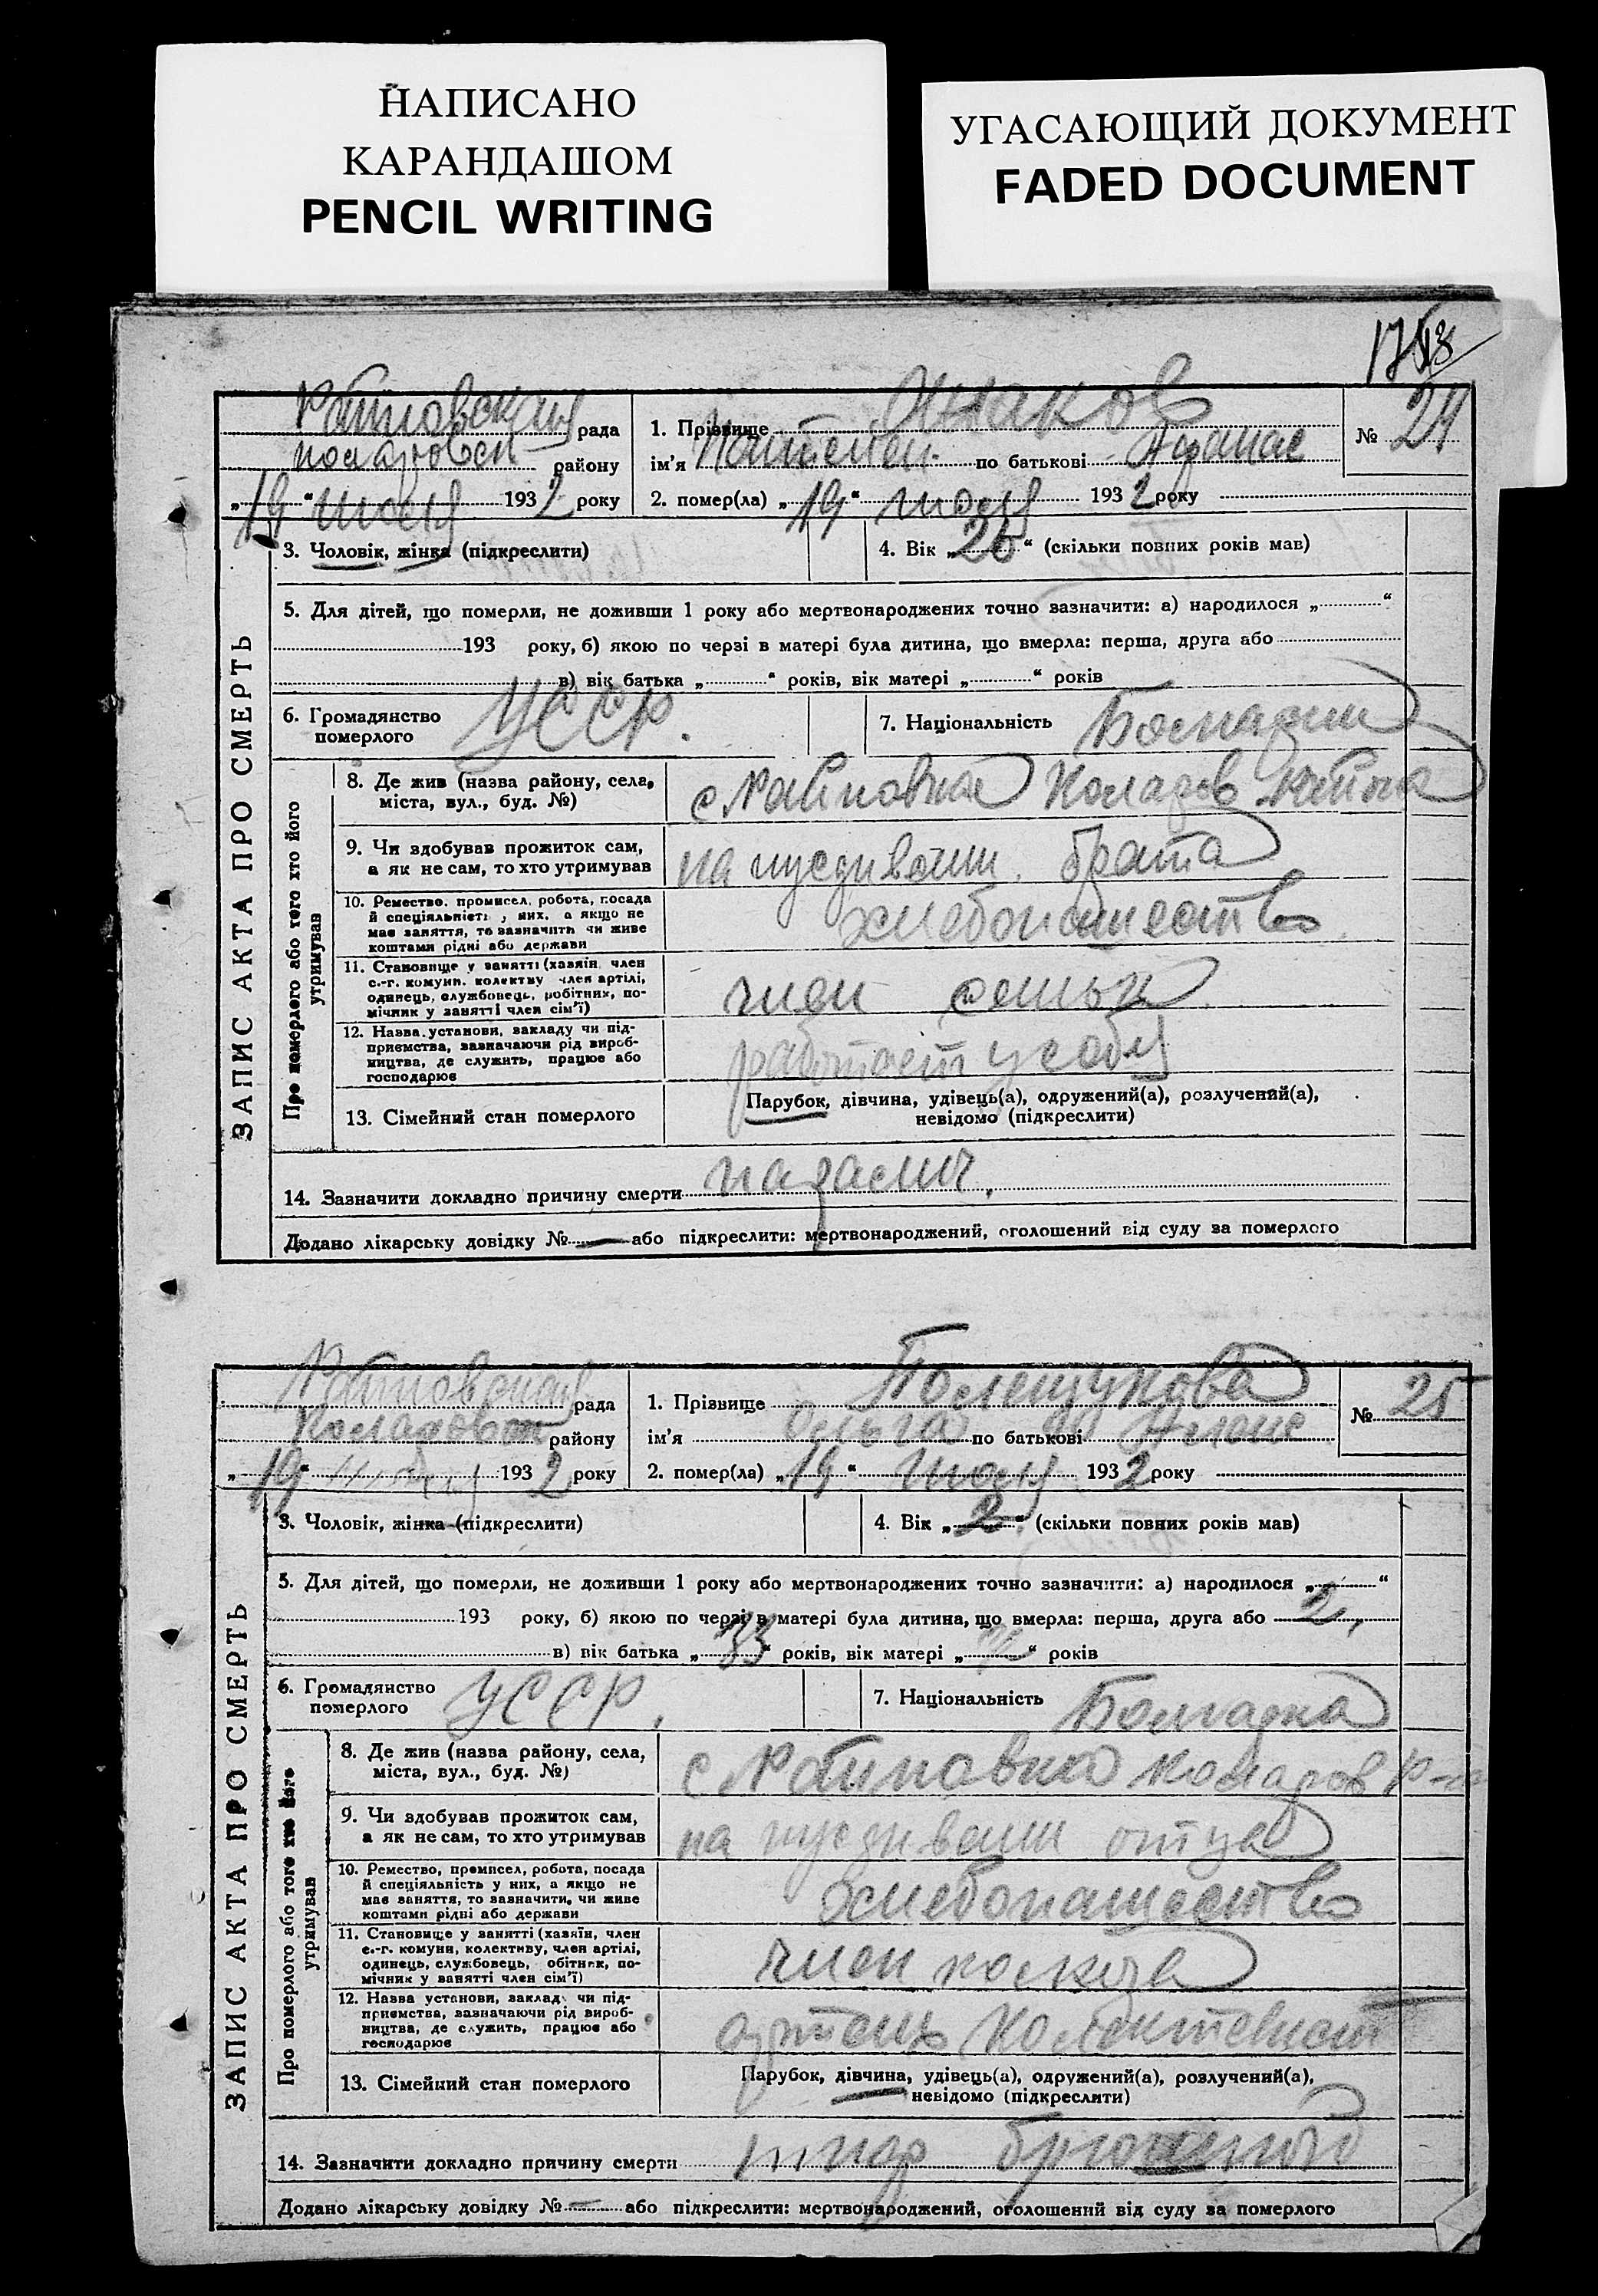 НАПИСАНО
КАРАНДАШОМ
PENCIL WRITING
УГАСАЮЩИЙ ДОКУМЕНТ
FADED DOCUMENT
ЗАПИС АКТА ПРО СМЕРТЬ
рада
району
„19“ июля 1932 року
1. Прізвище
ім'я Пантелей по батькові Афанас
№ 24
2. помер(ла) „19“ июля 1932 року
3. Чоловік, жінка (підкреслити)
4. Вік „26“ (скільки повних років мав)
5. Для дітей, що померли, не доживши 1 року або мертвонароджених точно зазначити: а) народилося „ “
193 року, б) якою по черзі в матері була дитина, що вмерла: перша, друга або
в) вік батька „ “ років, вік матері „ “ років
6. Громадянство
померлого
УССР.
7. Національність Болгарин
Про померлого або того хто його
утримував
8. Де жив (назва району, села,
міста, вул., буд. №)
9. Чи здобував прожиток сам,
а як не сам, то хто утримував
на иждивении брата
10. Ремество, промисел, робота, посада
й спеціяльність у них, а якщо не
має заняття, то зазначить чи живе
коштами рідні або держави
хлебопашество
11. Становище у занятті (хазяїн, член
с.-г. комуни, колективу член артілі,
одинець, службовець, робітник, по-
мічник у занятті член сім'ї)
член семьи
12. Назва установи, закладу чи під-
приємства, зазначаючи рід вироб-
ництва, де служить, працює або
господарює
работает у себя
13. Сімейний стан померлого
Парубок, дівчина, удівець(а), одружений(а), розлучений(а),
невідомо (підкреслити)
14. Зазначити докладно причину смерти
Додано лікарську довідку № — або підкреслити: мертвонароджений, оголошений від суду за померлого
ЗАПИС АКТА ПРО СМЕРТЬ
рада
району
„19“ 1932 року
1. Прізвище Полещукова
ім'я Ольга по батькові
№ 25
2. помер(ла) „19“ июля 1932 року
3. Чоловік, жінка (підкреслити)
4. Вік „2“ (скільки повних років мав)
5. Для дітей, що померли, не доживши 1 року або мертвонароджених точно зазначити: а) народилося „ “
193 року, б) якою по черзі в матері була дитина, що вмерла: перша, друга або 2,
в) вік батька „33“ років, вік матері „ “ років
6. Громадянство
померлого
УССР.
7. Національність Болгарка
Про померлого або того хто його
утримував
8. Де жив (назва району, села,
міста, вул., буд. №)
9. Чи здобував прожиток сам,
а як не сам, то хто утримував
на иждивении отца
10. Ремество, промисел, робота, посада
й спеціяльність у них, а якщо не
має заняття, то зазначити, чи живе
коштами рідні або держави
хлебопашество
11. Становище у занятті (хазяїн, член
с.-г. комуни, колективу, член артілі,
одинець, службовець, обітник, по-
мічник у занятті член сім'ї)
член колхоза
12. Назва установи, заклад чи під-
приємства, зазначаючи рід вироб-
ництва, де служить, працює або
господарює
13. Сімейний стан померлого
Парубок, дівчина, удівець(а), одружений(а), розлучений(а),
невідомо (підкреслити)
14. Зазначити докладно причину смерти тиф брюшной
Додано лікарську довідку № — або підкреслити: мертвонароджений, оголошений від суду за померлого